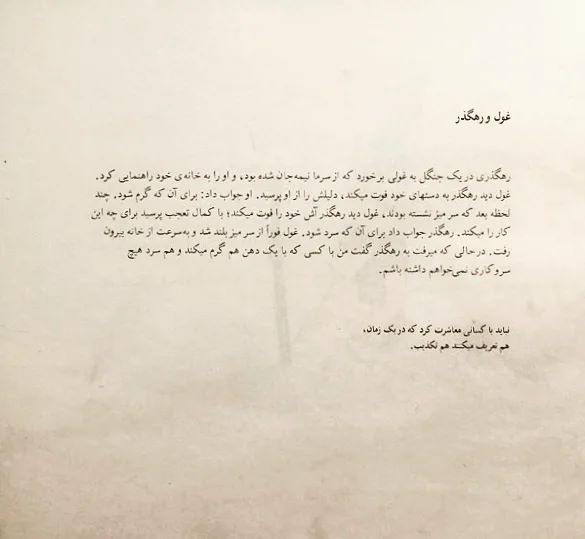 غول و رهگذر
رهگذری در یک جنگل به غولی برخورد که از سرما نیمه‌جان شده بود، و او را به خانه‌ی خود راهنمایی کرد.
غول دید رهگذر به دستهای خود فوت میکند، دلیلش را از او پرسید. او جواب داد: برای آن که گرم شود. چند
لحظه بعد که سر میز نشسته بودند، غول دید رهگذر آش خود را فوت میکند؛ با کمال تعجب پرسید برای چه این
کار را میکند. رهگذر جواب داد برای آن که سرد شود. غول فوراً از سر میز بلند شد و به‌سرعت از خانه بیرون
رفت. در حالی که میرفت به رهگذر گفت من با کسی که با یک دهن هم گرم میکند و هم سرد هیچ
سروکاری نمی‌خواهم داشته باشم.
نباید با کسانی معاشرت کرد که در یک زمان،
هم تعریف میکنند هم تکذیب.